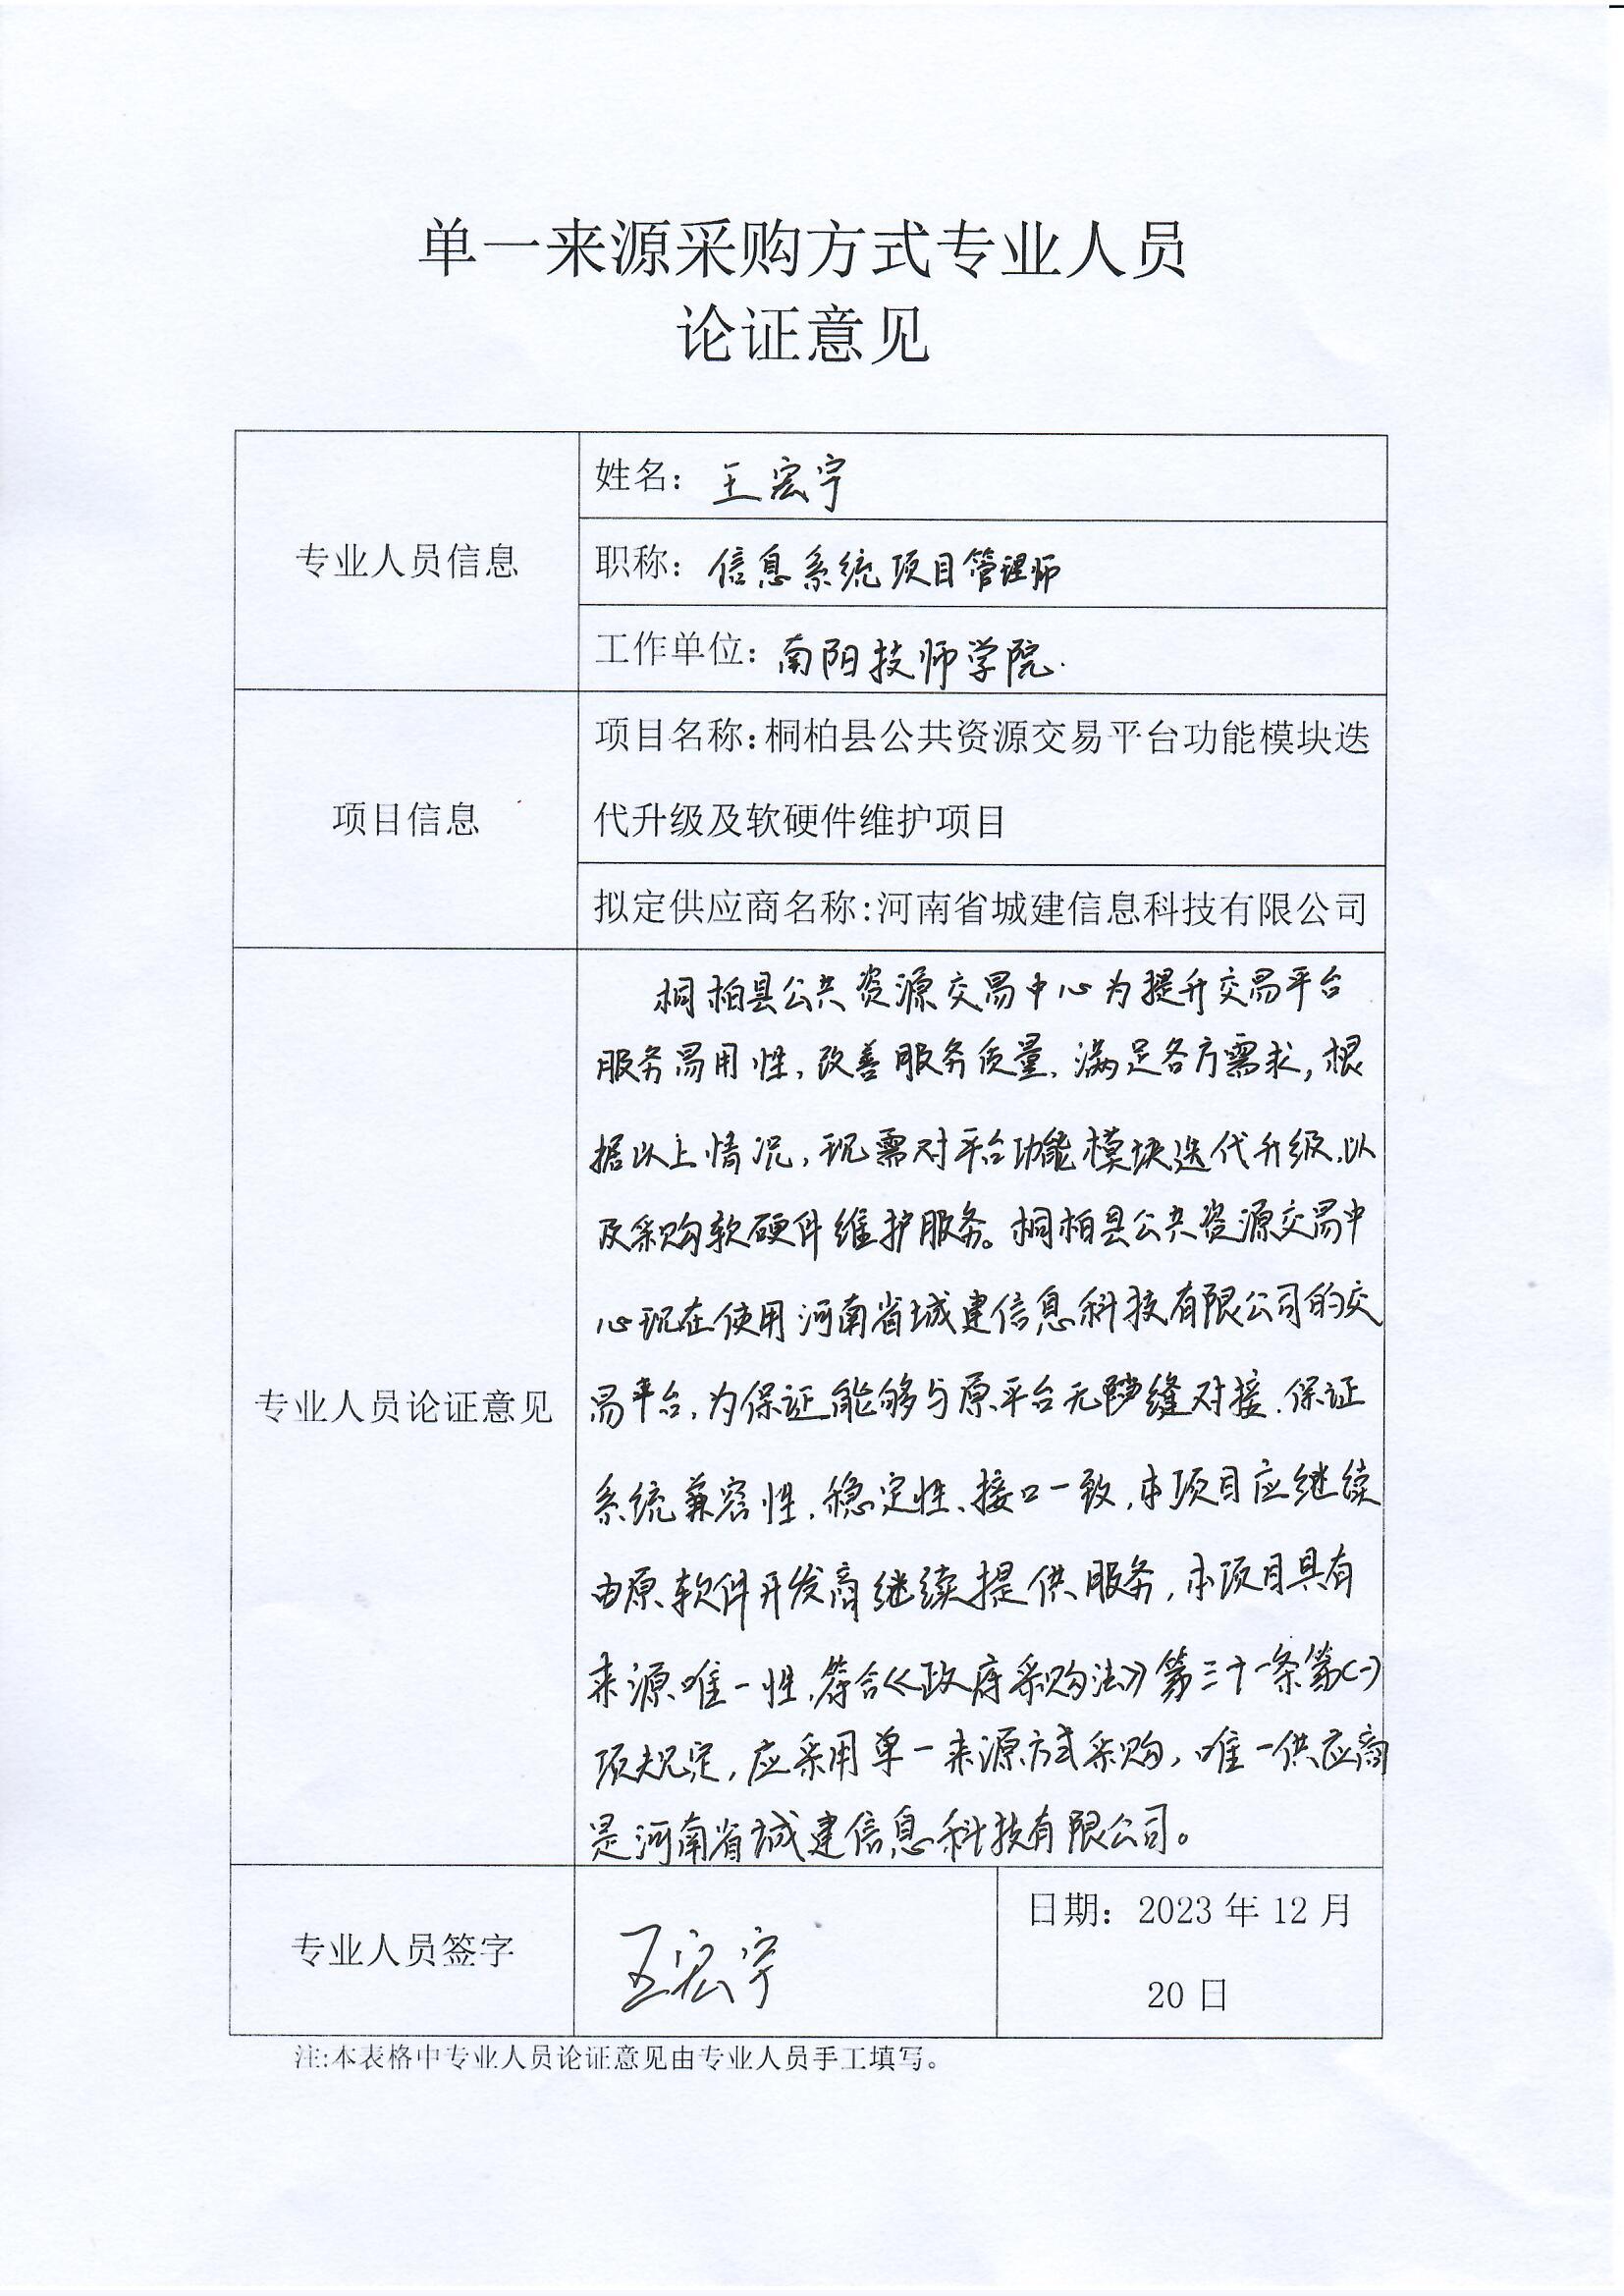 单一来源采购方式专业人员
论证意见
专业人员信息
姓名：王宏宇
职称：信息系统项目管理师
工作单位：南阳技师学院.
项目信息
项目名称：桐柏县公共资源交易平台功能模块迭
代升级及软硬件维护项目
拟定供应商名称：河南省城建信息科技有限公司
专业人员论证意见
桐柏县公共资源交易中心为提升交易平台
服务易用性，改善服务质量，满足各方需求，根
据以上情况，现需对平台功能模块迭代升级，以
及采购软硬件维护服务。桐柏县公共资源交易中
心现在使用河南省城建信息科技有限公司的交
易平台，为保证能够与原平台无隙缝对接，保证
系统兼容性，稳定性、接口一致，本项目应继续
由原软件开发商继续提供服务，本项目具有
来源唯一性，符合《政府采购法》第三十一条第（一）
项规定，应采用单一来源方式采购，唯一供应商
是河南省城建信息科技有限公司。
专业人员签字
王宏宇
日期：2023 年 12 月
20 日
注:本表格中专业人员论证意见由专业人员手工填写。